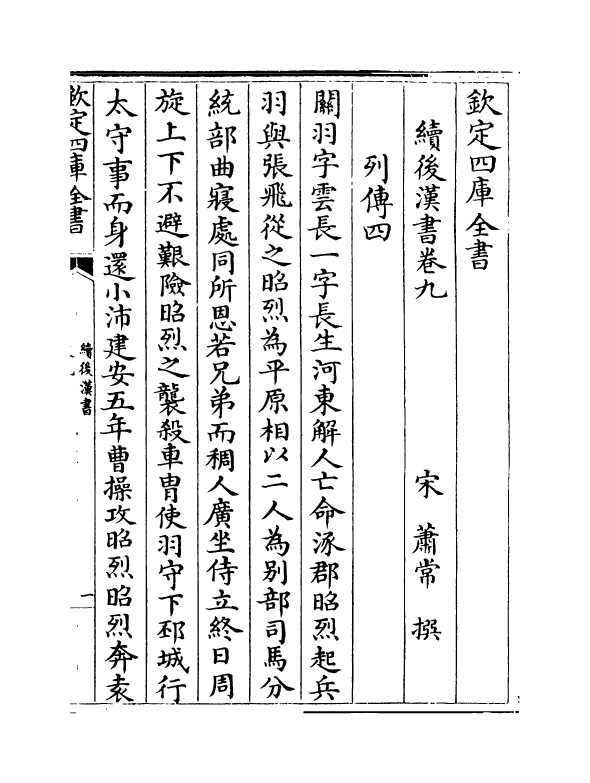 欽定四庫全書
續後漢書卷九
宋 蕭常 撰
列傳四
關羽字雲長一字長生河東解人亡命涿郡昭烈起兵
羽與張飛從之昭烈為平原相以二人為别部司馬分
統部曲寢處同所恩若兄弟而稠人廣坐侍立終日周
旋上下不避艱險昭烈之襲殺車胄使羽守下邳城行
太守事而身還小沛建安五年曹操攻昭烈昭烈奔袁
欽定四庫全書
續後漢書
一